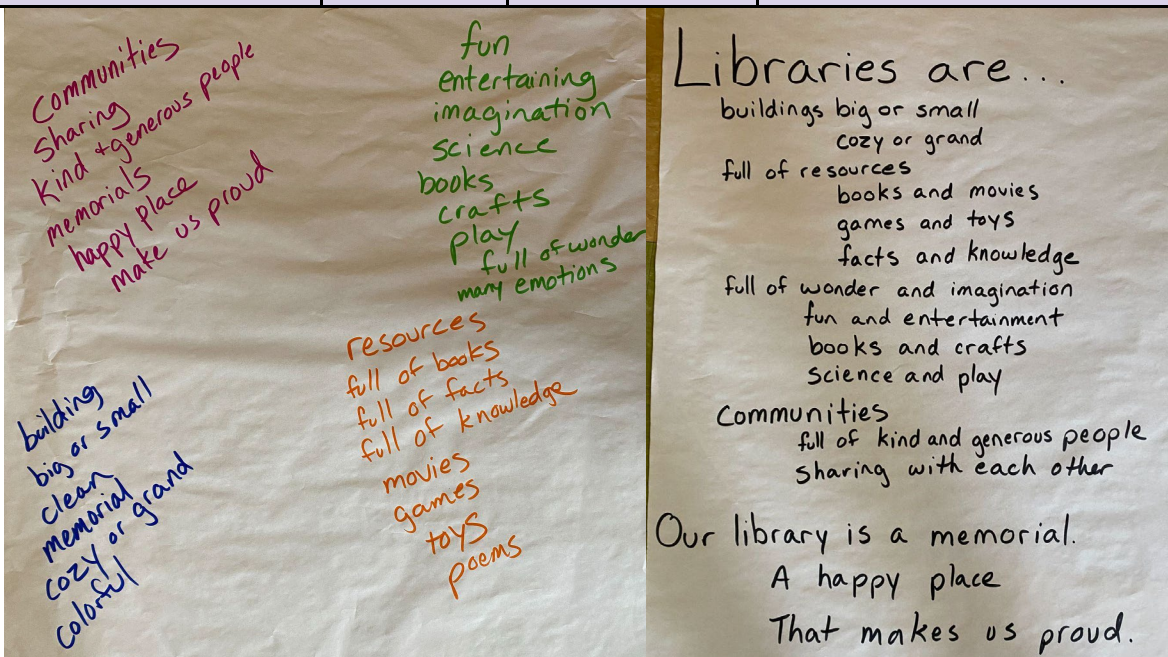 Communities
Sharing
kind + generous people
memorials
happy place
make us proud
fun
entertaining
imagination
science
books
crafts
play
full of wonder
many emotions
resources
full of books
full of facts
full of knowledge
movies
games
toys
poems
building
big or small
clean
memorial
cozy or grand
colorful
Libraries are...
buildings big or small
cozy or grand
full of resources
books and movies
games and toys
facts and knowledge
full of wonder and imagination
fun and entertainment
books and crafts
science and play
Communities
full of kind and generous people
sharing with each other
Our library is a memorial.
A happy place
That makes us proud.